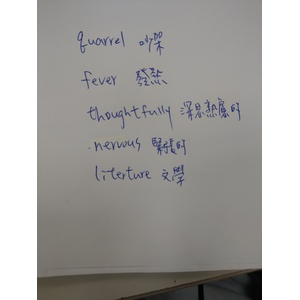 quarrel 吵架
fever 發熱
thoughtfully 深思熟慮的
nervous 緊張的
literture 文學